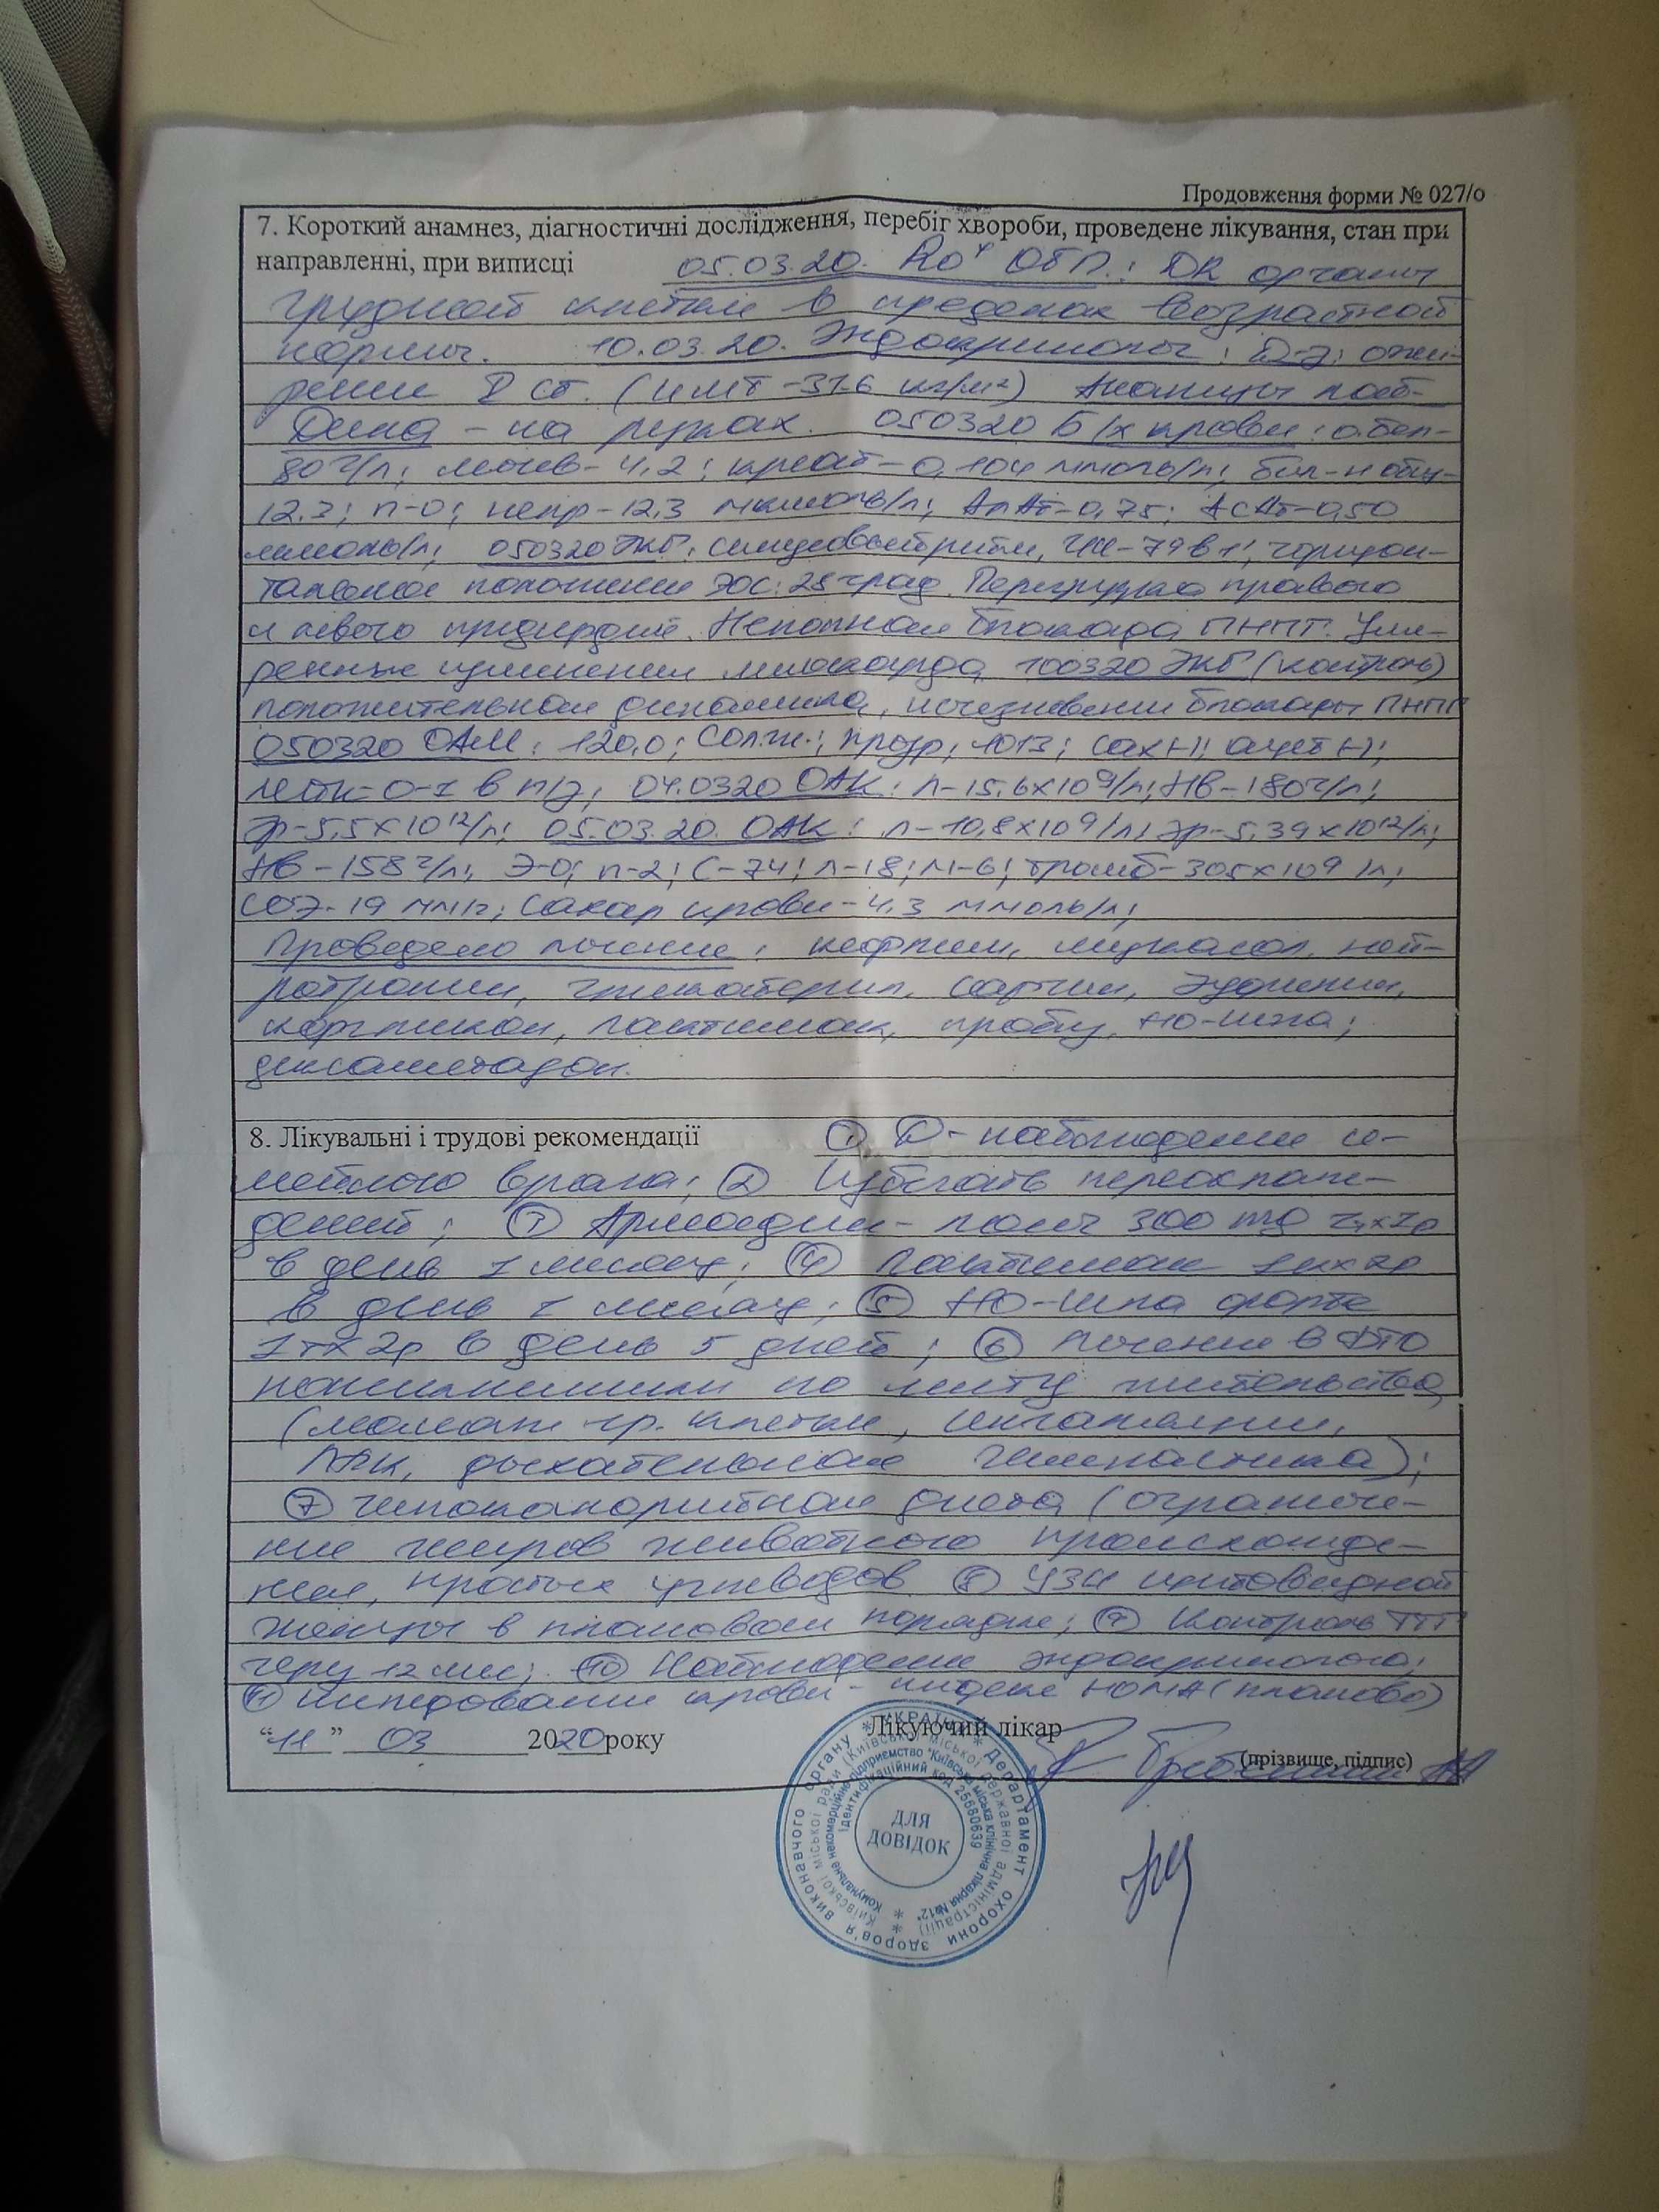 Продовження форми № 027/о
7. Короткий анамнез, діагностичні дослідження, перебіг хвороби, проведене лікування, стан при
направленні, при виписці 05.03.20. ОГП: органы
грудной клетки в пределах возрастной
нормы. 10.03.20. Эндокринолог: Д-з: ожи-
рение ст. (ИМТ-31.6 кг/м²) Анализы
на руках. 050320 Б/х крови: о.бел-
80 г/л; мочев-4,2; креат-0,104 ммоль/л; бил-н общ-
12.3; п-0; непр-12,3 мкмоль/л; АлАт-0,75; АсАт-0,50
ммоль/л; 050320 ЭКГ: синусовый ритм, ЧСС-79 в 1', горизон-
тальное положение ЭОС: 28 град. Перегрузка правого
и левого предсердий. Неполная блокада ПНПГ. Уме-
ренные изменения миокарда. 100320 ЭКГ (контроль)
положительная динамика, исчезновение блокады ПНПГ
050320 ОАМ: 120,0; сол.ж.; прозр; 1013; сах(-); ацет(-);
лейк-0-1 в п/з; 04.0320 ОАК: Л-15,6х10⁹/л; НВ-180 г/л;
Эр-5,5х10¹²/л; 05.03.20. ОАК: Л-10,8х10⁹/л; Эр-5,39х10¹²/л;
НВ-158 г/л; Э-0; п-2; С-74; Л-18; М-6; тромб-305х10⁹/л;
СОЭ-19 мм/ч; Сахар крови-4,3 ммоль/л;
Проведено лечение:
коргликон, лактимак, но-шпа;
дексаметазон.
8. Лікувальні і трудові рекомендації ① Д-наблюдение се-
мейного врача; ② Избегать переохлаж-
дений; ③ 300 mg
в день 1 месяц; ④ Лактимак
в день 1 месяц; ⑤ Но-шпа форте
1тх2р в день 5 дней; ⑥ Лечение в ФТО
поликлиники по месту жительства
(массаж гр. клетки, ингаляции,
ЛФК, дыхательная гимнастика);
⑦ гипокалорийная диета (ограниче-
ние жиров животного происхожде-
ния, простых углеводов ⑧ УЗИ щитовидной
железы в плановом порядке; ⑨ Контроль ТТГ
через 12 мес; ⑩ Наблюдение эндокринолога;
⑪ исследование крови - индекс НОМА (планово)
“11” 03 2020 року Лікуючий лікар
(прізвище, підпис)
УКРАЇНА * Департамент охорони здоров'я виконавчого органу
Київської міської ради (Київської міської державної адміністрації)
Комунальне некомерційне підприємство "Київська міська клінічна лікарня №12"
Ідентифікаційний код 25680639
ДЛЯ
ДОВІДОК